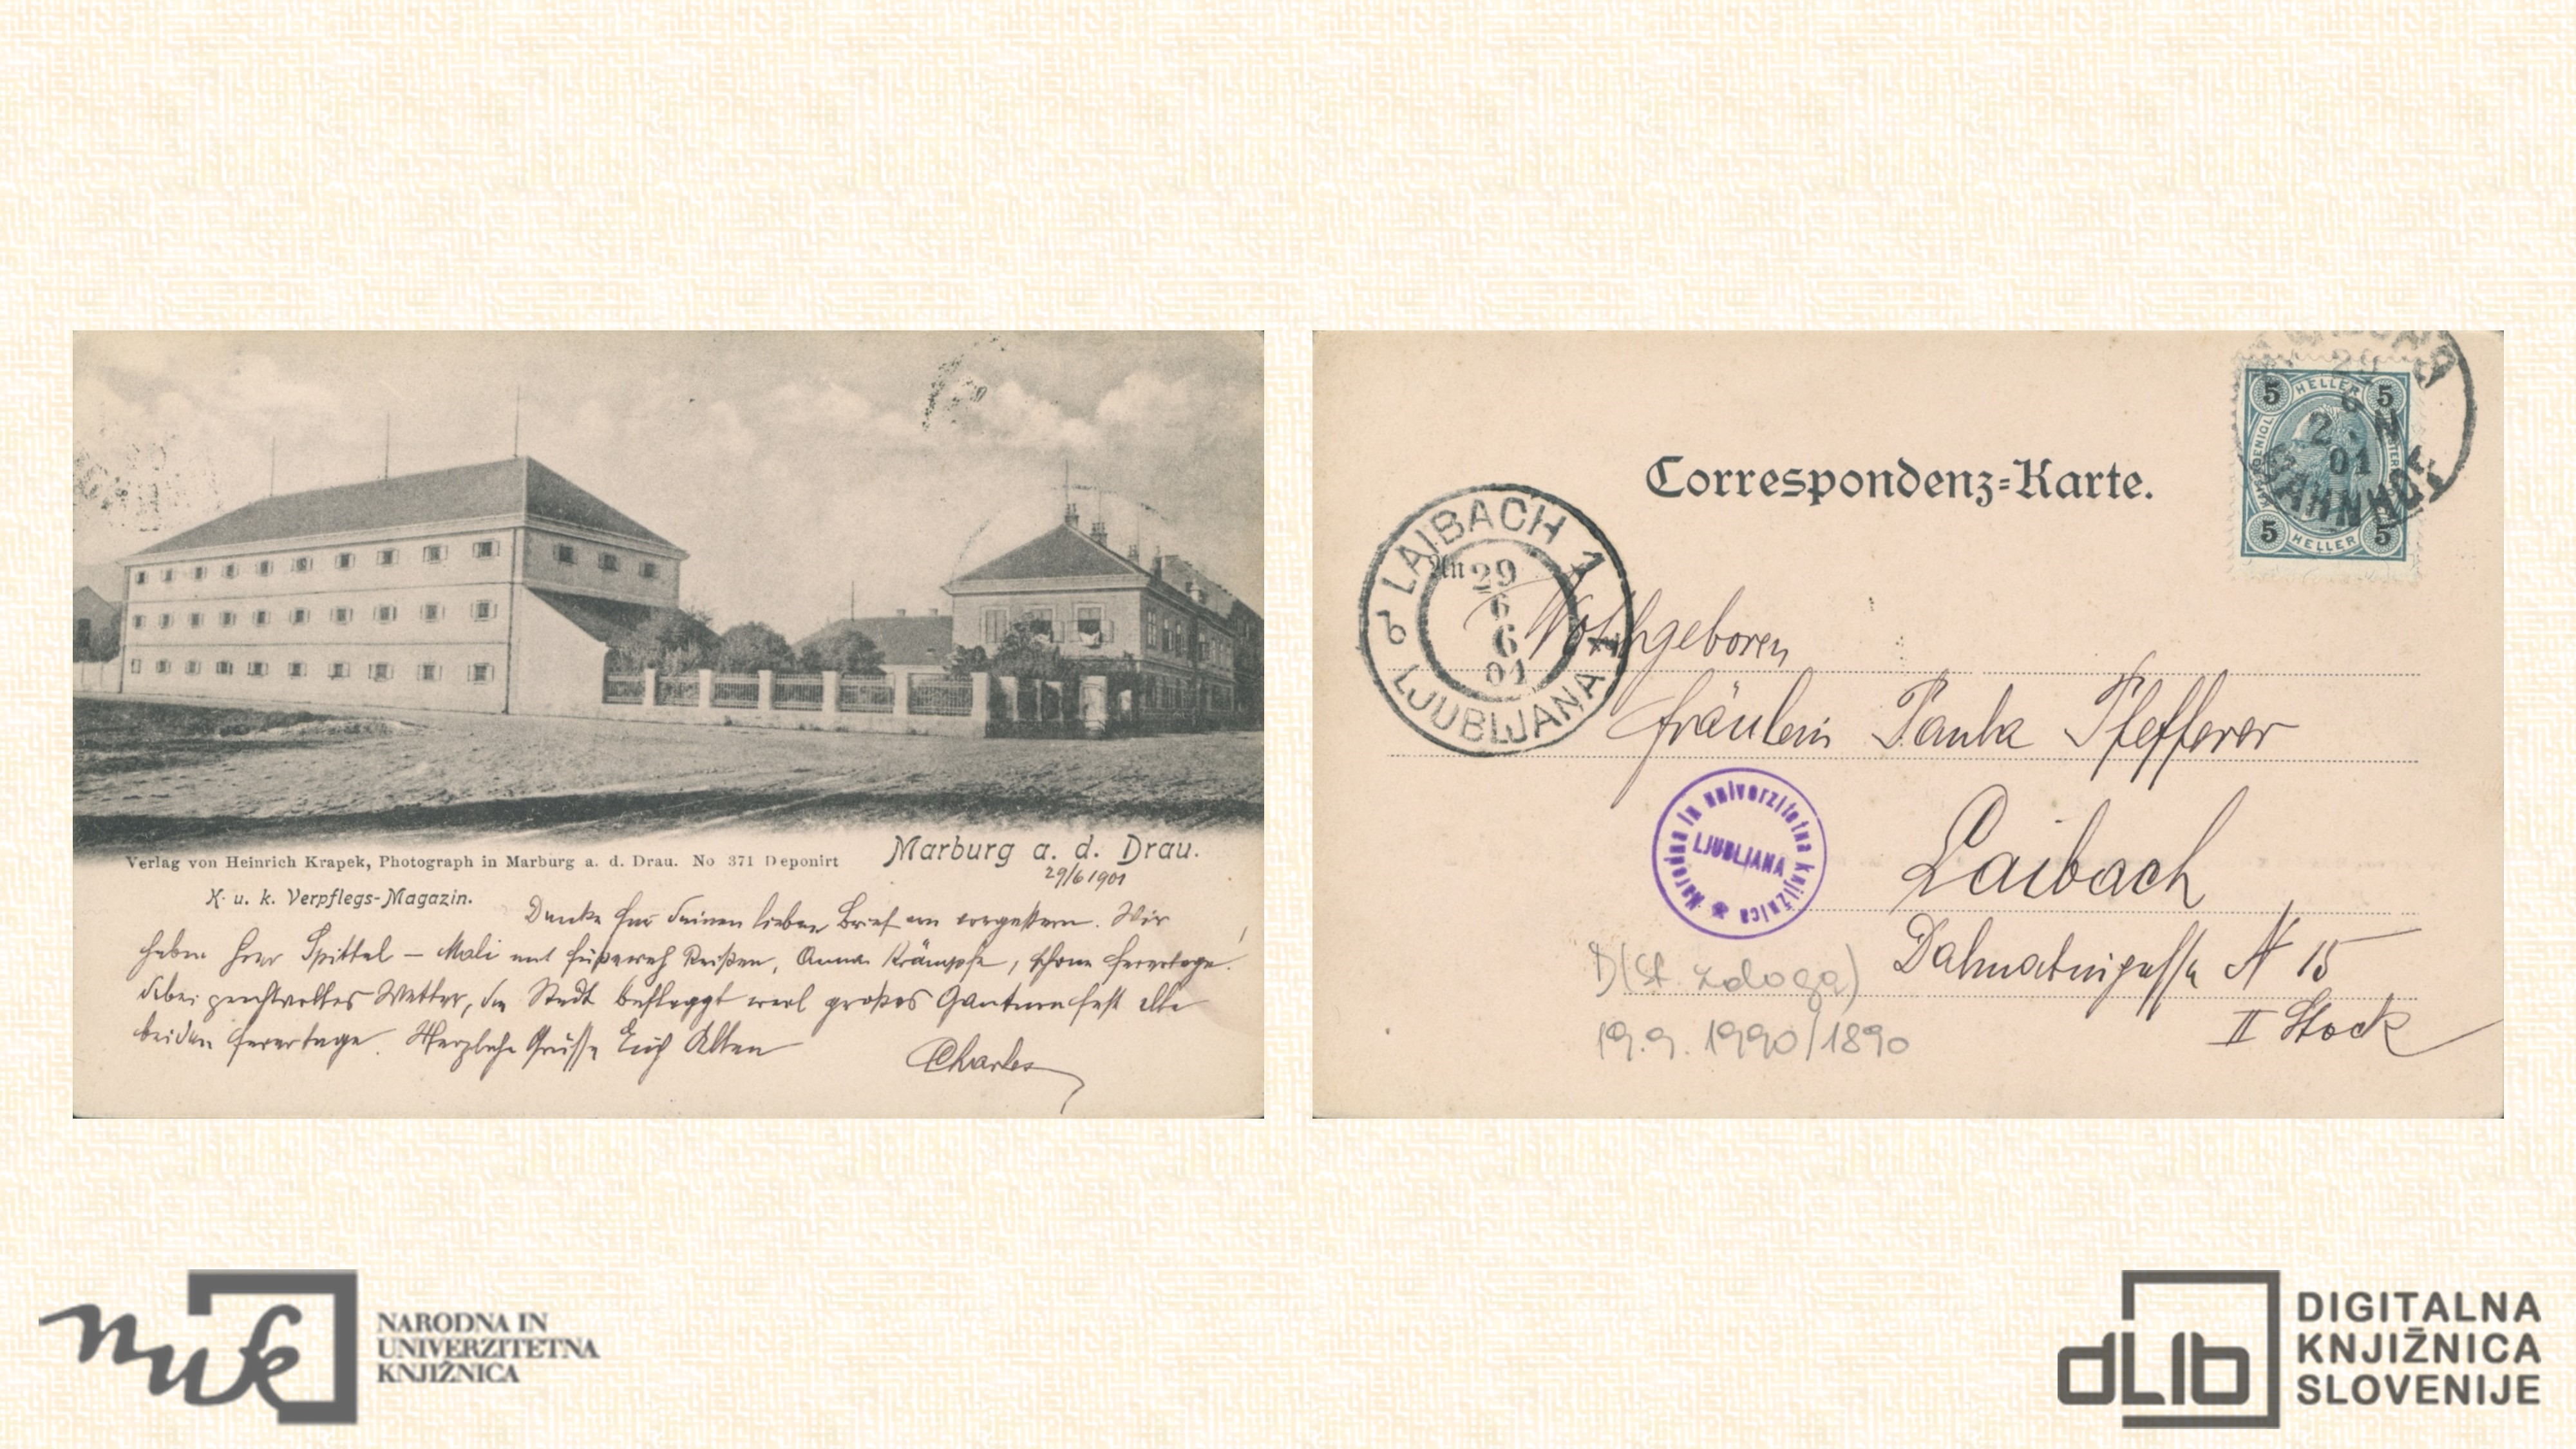 Verlag von Heinrich Krapek, Photograph in Marburg a. d. Drau. No 371 Deponirt
Marburg a. d. Drau.
29/6 1901
K. u. k. Verpflegs-Magazin.
Danke für Deinen lieben Brief von vorgestern. Wir
haben hier Spittal – Mali mit Reißen, Anna Krämpfe, schöne Feiertage!
dabei prachtvolles Wetter, die Stadt beflaggt weil großes Gauturnfest alle
beiden Feiertage. Herzliche Grüsse Euch Allen
Charles
Correspondenz-Karte.
5 HELLER 5
5 HELLER 5
29
6
01
BAHNHOF
LAIBACH 1
An
29
6
6
01
b
LJUBLJANA 1
Wohlgeboren
Fräulein Paula Pfefferer
Laibach
Dalmatingasse N 15
II Stock
Narodna in univerzitetna knjižnica
LJUBLJANA
D(st. zaloga)
19.9.1990/1890
nuk
NARODNA IN
UNIVERZITETNA
KNJIŽNICA
dLib
DIGITALNA
KNJIŽNICA
SLOVENIJE